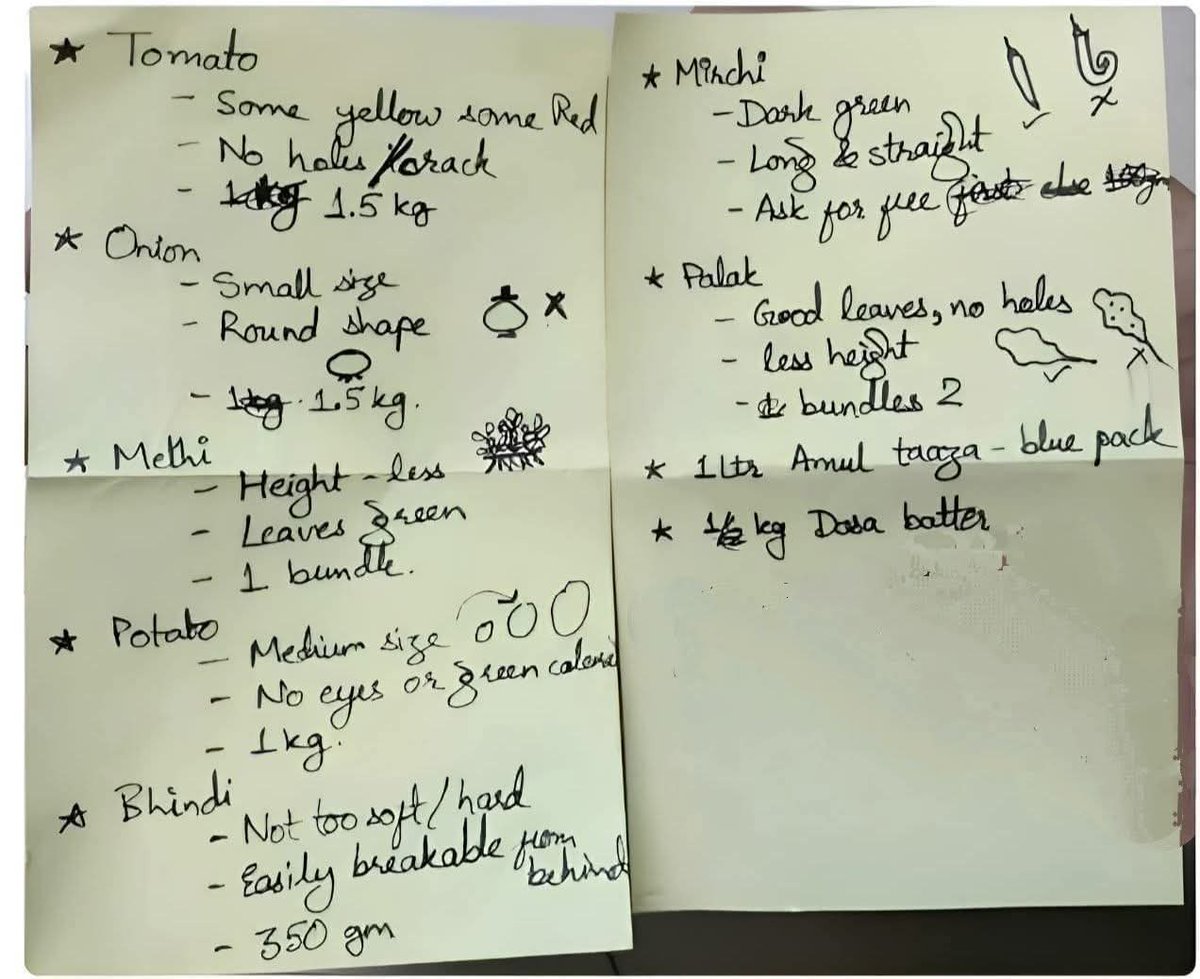 ★ Tomato
- Some yellow some Red
- No holes/crack
- 1.5 kg
★ Onion
- Small size
- Round shape
- 1.5 kg.
★ Methi
- Height - less
- Leaves green
- 1 bundle.
★ Potato
- Medium size
- No eyes or green colored
- 1 kg.
★ Bhindi
- Not too soft/hard
- Easily breakable from
behind
- 350 gm
★ Mirchi
- Dark green
- Long & straight
- Ask for free
★ Palak
- Good leaves, no holes
- less height
- bundles 2
★ 1 Ltr Amul taaza - blue pack
★ kg Dosa batter